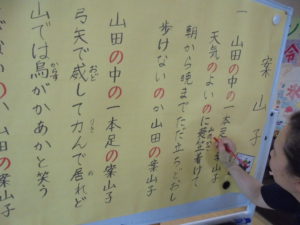 案山子
一 山田の中の一本足の案山子
天気のよいのに蓑笠着けて
朝から晩までただ立ちどおし
歩けないのか山田の案山子
山田の中の一本足の案山子
弓矢で威して力んで居れど
山では烏がかあかと笑う
山田の案山子